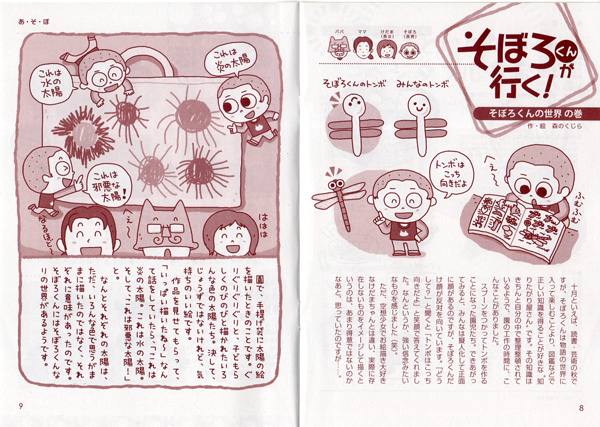 そぼろくんが
行く!
そぼろくんの世界 の巻
作・絵 森のくじら
パパ
ママ
けだま(長女)
そぼろ(長男)
そぼろくんのトンボ
みんなのトンボ
トンボは
こっち
向きだよ
え〜
ふむふむ
十月といえば、読書、芸術の秋で
すが、そぼろくんは物語の世界に
入って楽しむことより、図鑑などで
正しい知識を得ることが好きな、知
りたがり屋さんです。その知識は
きちんと自分の中で整理整頓されて
いるようで、園の工作の時間に、こ
んなことがありました。
スプーンをつかってトンボを作る
ことになった園児たち。できあがっ
てみると、みんなは擬人化して正面
に顔があるのだが、そぼろくんだ
け顔が反対を向いています。「どう
して?」と聞くと「トンボはこっち
向きだよ」と笑顔で答えてくれまし
た。なんというか、強い信念みたい
なものを感じました(笑)。
ただ、空想少女でお絵描き大好き
なけだまちゃんとは違い、実際に存
在しないものをイメージして描くと
いうのは、あまり得意ではないのか
なあと、思っていたのですが…。
8
あ・そ・ぼ
これは
炎の太陽
これは
氷の
太陽
これは
邪悪な
太陽!
なるほど〜
ははは
園で、手提げ袋に太陽の絵
を描いたときのことです。ぐ
りぐりぐり〜っと、子どもら
しくのびのびと描かれたいろ
んな色の太陽たち。決して、
じょうずではないけれど、気
持ちのいい絵です。
作品を見せてもらって、
「いっぱい描いたね〜」なん
て話をしていたら、「これは
炎の太陽。これは氷の太陽!
そして、これは邪悪な太陽!」
と。
なんとそれぞれの太陽は、
ただ、いろんな色で思うがま
まに描いたのではなく、それ
ぞれに意味があったのです。
そぼろくんにはそぼろくんな
りの世界があるようです。
9